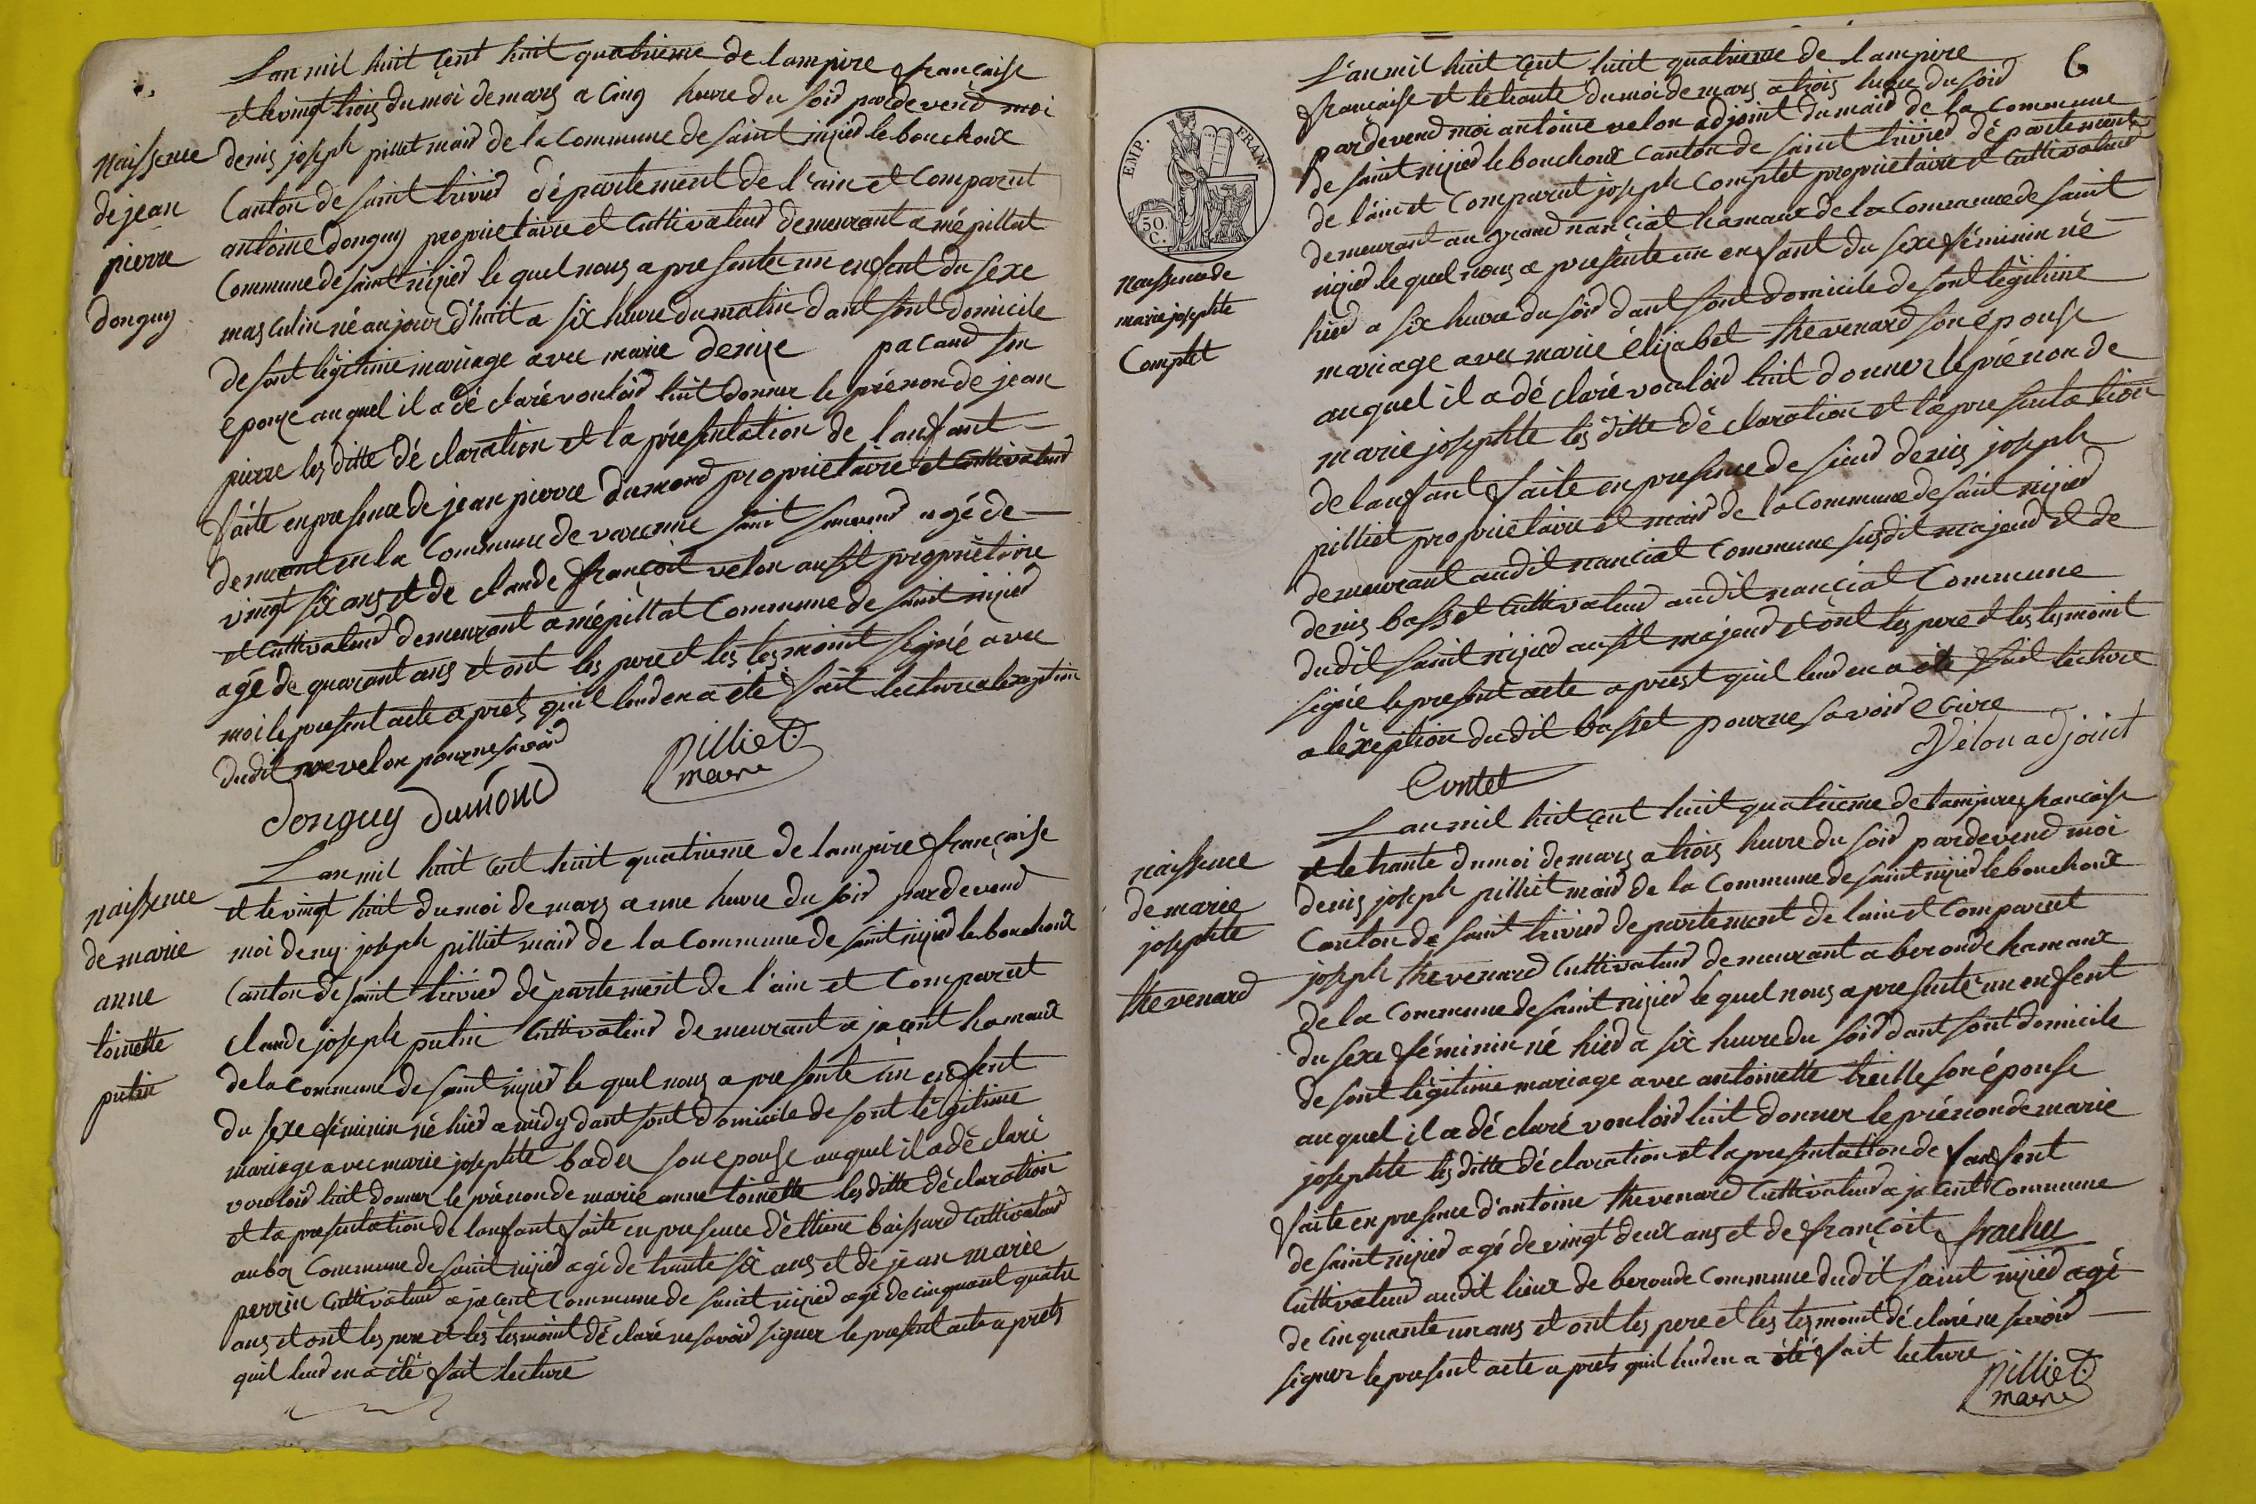 L'an mil huit çent huit quatrieme de lampire française
et le vingt trois du moi de mars a Cinq heure du soir par devend moi
denis joseph pilliet mair de la Commune de saint nizied le bouchoux
Canton de saint trivied département de l'ain et Comparut
antoine donguy proprietaire et Cuttivateur demeurant a mépillat
Commune de saint nizied le quel nous a presente un enfent du sexe
masculin né au jour d'huit a six heure du matin dant sont domicile
de sont légitime mariage avec marie denise pacaud son
epouze auquel il a dé claré vouloir luit donner le prénon de jean
pierre les ditte dé claration et la présentation de lanfant
faite en presence de jean pierre dumond proprietaire et Cuttivateur
demeurant en la Commune de varenne saint sauveur agé de
vingt six ans et de claude françoit velon aussit propriétaire
et Cuttivateur demeurant a mépillat Commune de saint nizied
agé de quarant ans et ont les pere et les tesmoint signé avec
moi le present acte a prets quil leud en a été fait lecture a lexeption
dudit velon pour ne savoir
pilliet
maire
Donguy Dumond
naissence
de jean
pierre
donguy
L'an mil huit cent huit quatrieme de lampire française
et le vingt huit du moi de mars a une heure du soir par devend
moi deny joseph pilliet mair de la Commune de saint nizied le bouchoux
Canton de saint trivied département de l'ain et Comparut
claude joseph putin Cuttivateur demeurant a jacent hamaux
de la Commune de saint nizied le quel nous a presente un enfent
du sexe féminin né hied a midy dant sont domicile de sont légitime
mariage avec marie josephte badez son epouse auquel il a dé claré
vouloir luit donner le prénon de marie anne toinette les ditte déclaration
et la presentation de lanfant faite en presence d'ettiene baissard Cuttivateur
au boz Commune de saint nizied agé de trante six ans et de jean marie
perrin Cuttivateur a jacent Commune de saint nizied agé de cinquant quatre
ans et ont les pere et les tesmoint dé claré ne savoir signer le present acte a prets
quil leud en a été fait lecture
naissence
de marie
anne
toinette
putin
6
EMP. FRAN.
50
C.
L'an mil huit çent huit quatrieme de lampire
française et le trante du moi de mars a trois heure du soir
par devend moi antoine velon adjoint du mair de la Commune
de saint nizied le bouchoux Canton de saint trivied département
de l'ain et Comparut joseph Comptet proprietaire et Cuttivateur
demeurant au grand nanciat hamaux de la Commune de saint
nizied le quel nous a presente un enfant du sexe féminin né
hied a six heure du soir dant sont domicile de sont légitime
mariage avec marie élizabet thevenard son épouse
auquel il a dé claré vouloir luit donner le prénon de
marie josephte les ditte dé claration et la presentation
de lanfant faite en presence de sieur denis joseph
pilliet proprietaire et mair de la Commune de saint nizied
demeurant audit nanciat Commune susdit majeur et de
denis basset Cuttivateur audit nanciat Commune
dudit saint nizied aussit majeur et ont les pere et les tesmoint
signé le present acte a prest quil leud en a été fait lecture
a léxeption dudit basset pour ne savoir ecrire
Velon adjoint
Contet
naissence de
marie josephte
Comptet
L'an mil huit çent huit quatrieme de lampire française
et le trante du moi de mars a trois heure du soir par devend moi
denis joseph pilliet mair de la Commune de saint nizied le bouchoux
Canton de saint trivied departement de lain et Comparut
joseph thevenard Cuttivateur demeurant a beronde hamaux
de la Commune de saint nizied le quel nous a presente un enfent
du sexe féminin né hied a six heure du soir dant sont domicile
de sont légitime mariage avec antoinette treille son épouse
auquel il a dé claré vouloir luit donner le prénon de marie
josephte les ditte dé claration et la presentation de lanfent
faite en presence d'antoine thevenard Cuttivateur a jacent Commune
de saint nizied agé de vingt deux ans et de françoit frachet
Cuttivateur audit lieux de beronde Commune dudit saint nizied agé
de cinquante un ans et ont les pere et les tesmoint dé claré ne savoir
signer le present acte a prets quil leud en a été fait lecture
pilliet
maire
naissence
de marie
josephte
thevenard